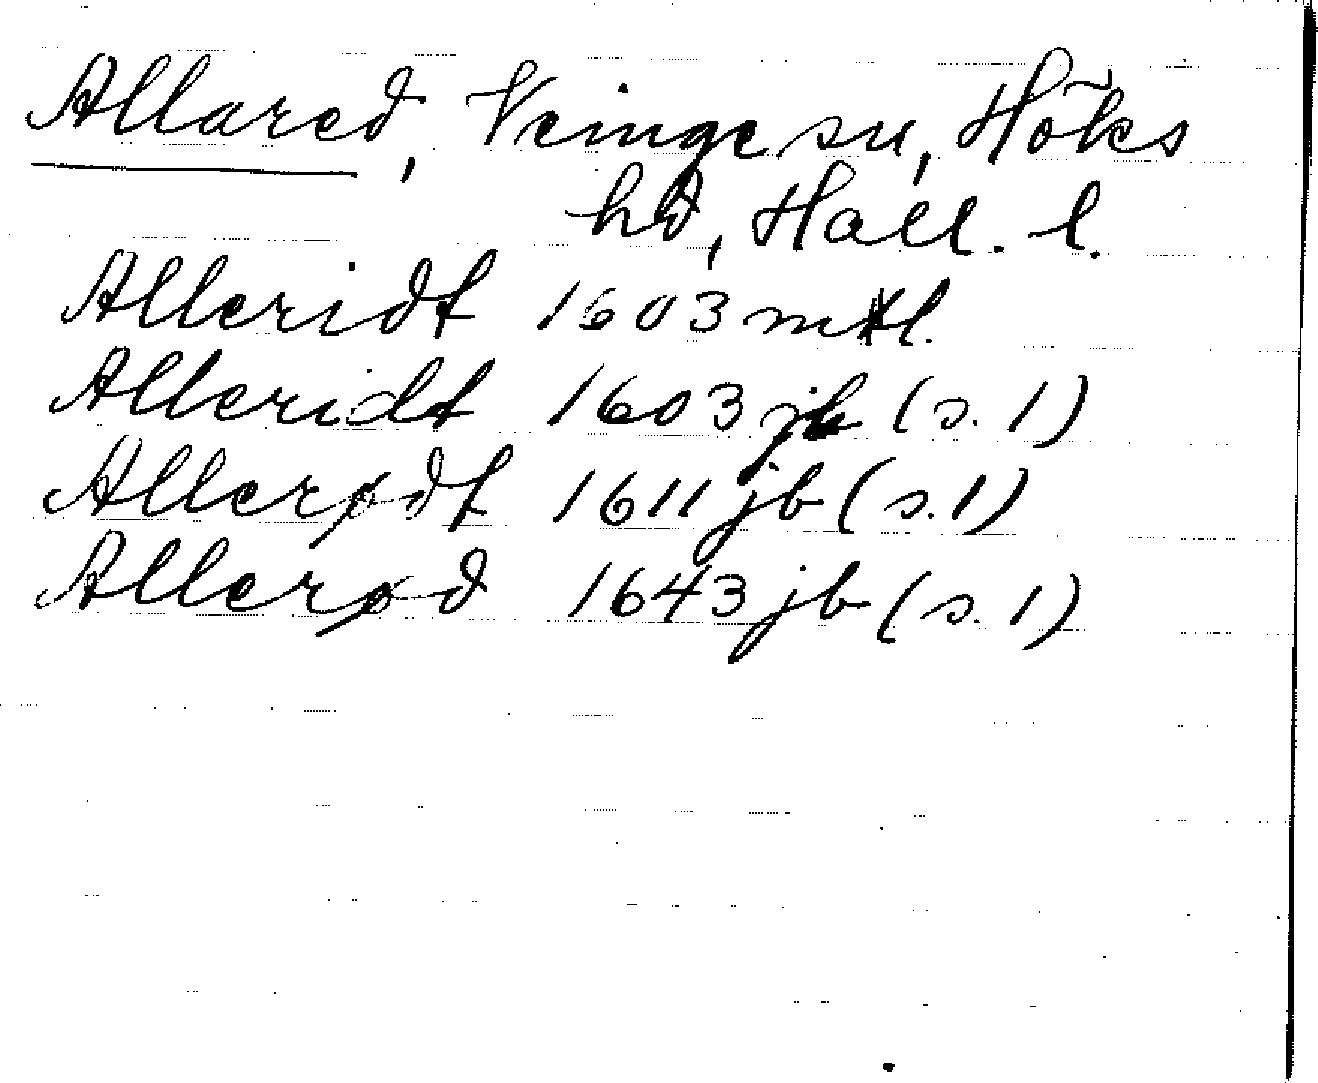 Allared, Veinge sn, Höks
hd, Hall. l.
Alleridt 1603 mtl.
Alleridt 1603 jb (s. 1)
Allerødt 1611 jb (s. 1)
Allerød 1643 jb (s. 1)